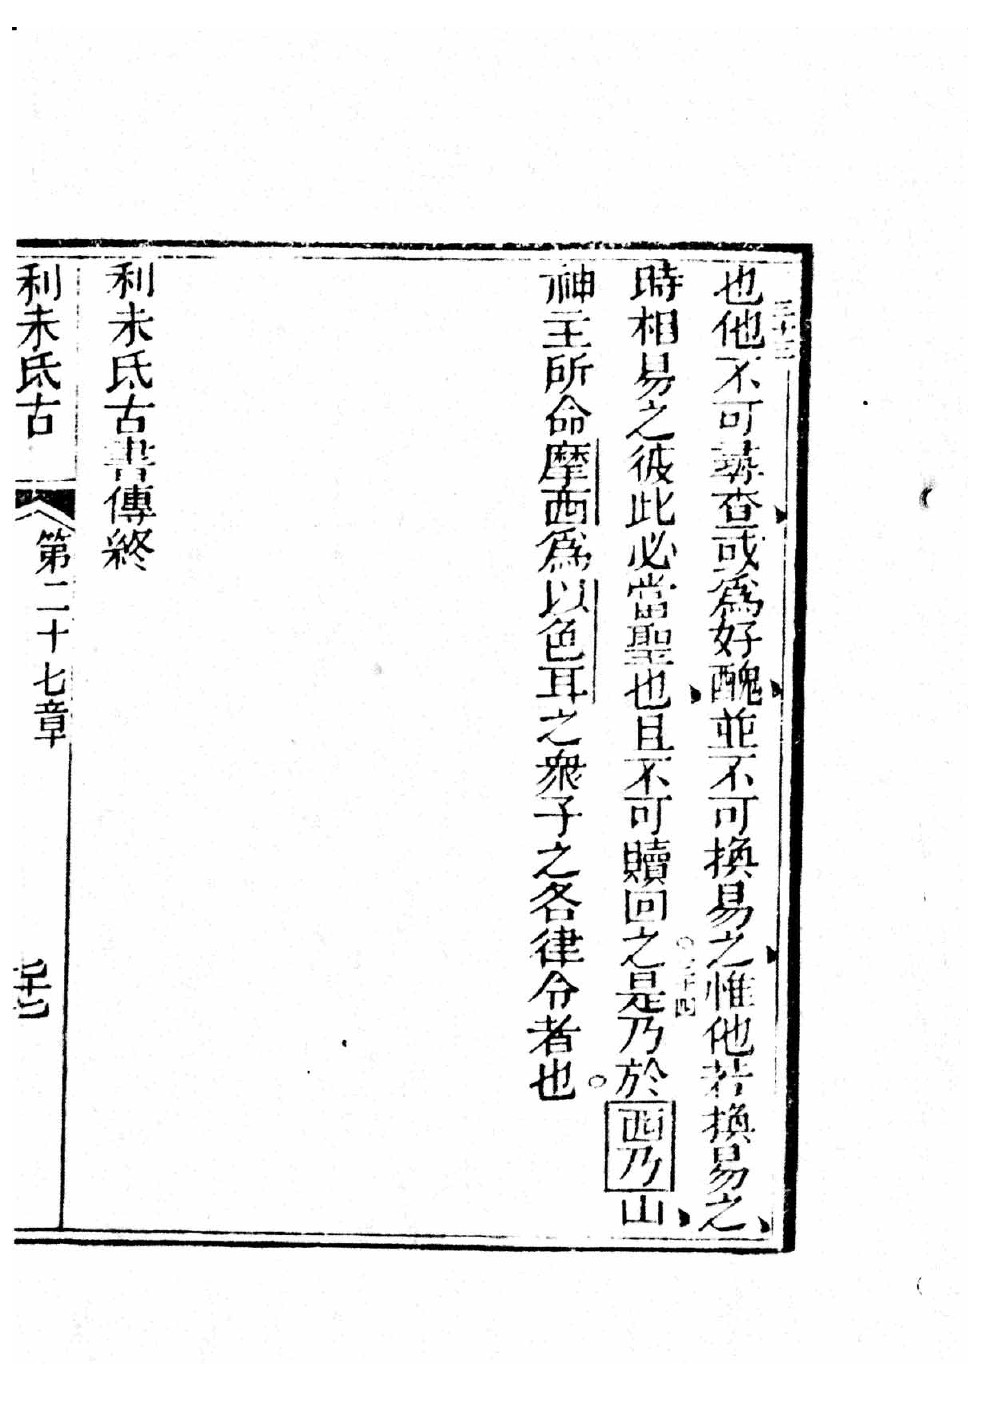 三十三
也他不可尋查或爲好醜並不可換易之惟他若換易之
時相易之彼此必當聖也且不可贖回之是乃於西乃山
三十四
神主所命摩西爲以色耳之衆子之各律令者也
利未氏古書傳終
利未氏古 第二十七章